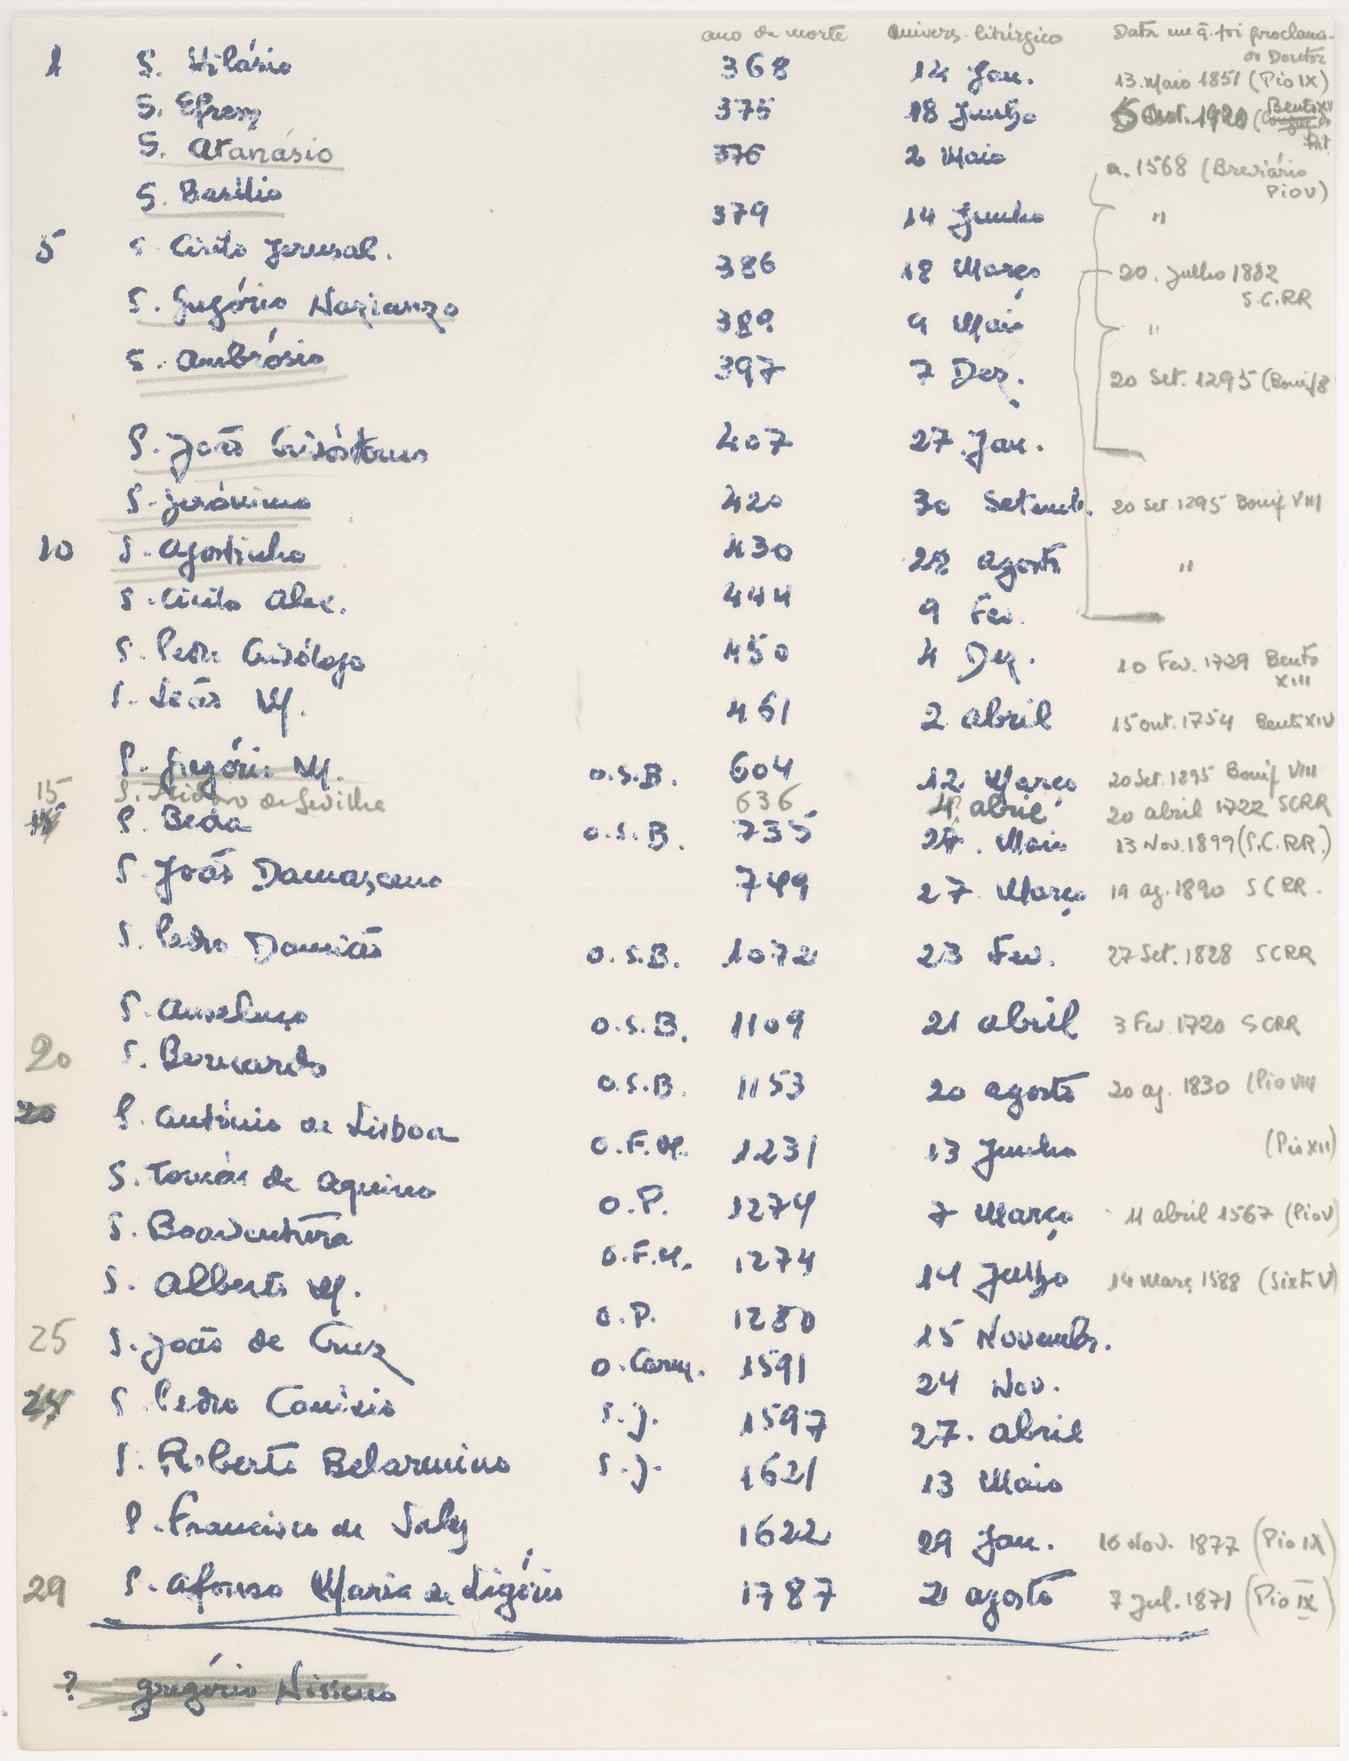 ano da morte Anivers. litúrgico Data em q. foi proclamado Doutor
1 S. Hilário 368 14 Jan. 13. Maio 1851 (Pio IX)
S. Efrem 375 18 Junho 5 Out. 1920 (Bento XV
S. Atanásio 376 2 Maio a. 1568 (Breviário Pio V)
S. Basílio 379 14 Junho "
5 S. Cirilo Jerusal. 386 18 Março 20. Julho 1882 S.C.RR
S. Gregório Nazianzo 389 9 Maio "
S. Ambrósio 397 7 Dez. 20 Set. 1295 (Bonif 8
S. João Crisóstomo 407 27. Jan.
S. Jerónimo 420 30 Setemb. 20 Set. 1295 Bonif VIII
10 S. Agostinho 430 28 agosto "
S. Cirilo Alex. 444 9 Fev.
S. Pedro Crisólogo 450 4 Dez. 10 Fev. 1729 Bento XIII
S. Leão M. 461 2 abril 15 out. 1754 Bento XIV
S. Gregório M. O.S.B. 604 12 Março 20 Set. 1295 Bonif VIII
15 S. Isidoro de Sevilha 636 4 abril 20 abril 1722 SCRR
S. Beda O.S.B. 735 27. Maio 13 Nov. 1899 (S.C.RR.)
S. João Damasceno 749 27 Março 19 ag. 1890 SCRR.
S. Pedro Damião O.S.B. 1072 23 Fev. 27 Set. 1828 SCRR
S. Anselmo O.S.B. 1109 21 abril 3 Fev. 1720 SCRR
20 S. Bernardo O.S.B. 1153 20 agosto 20 ag. 1830 (Pio VIII
20 S. António de Lisboa O.F.M. 1231 13 Junho (Pio XII)
S. Tomás de Aquino O.P. 1274 7 Março 11 abril 1567 (Pio V)
S. Boaventura O.F.M. 1274 14 Julho 14 Març 1588 (Sixto V)
S. Alberto M. O.P. 1280 15 Novembr.
25 S. João da Cruz O. Carm. 1591 24 Nov.
S. Pedro Canísio S.J. 1597 27. abril
S. Roberto Belarmino S.J. 1621 13 Maio
S. Francisco de Sales 1622 29 Jan. 16 Nov. 1877 (Pio IX)
29 S. Afonso Maria de Ligório 1787 2 agosto 7 Jul. 1871 (Pio IX)
? Gregório Nisseno